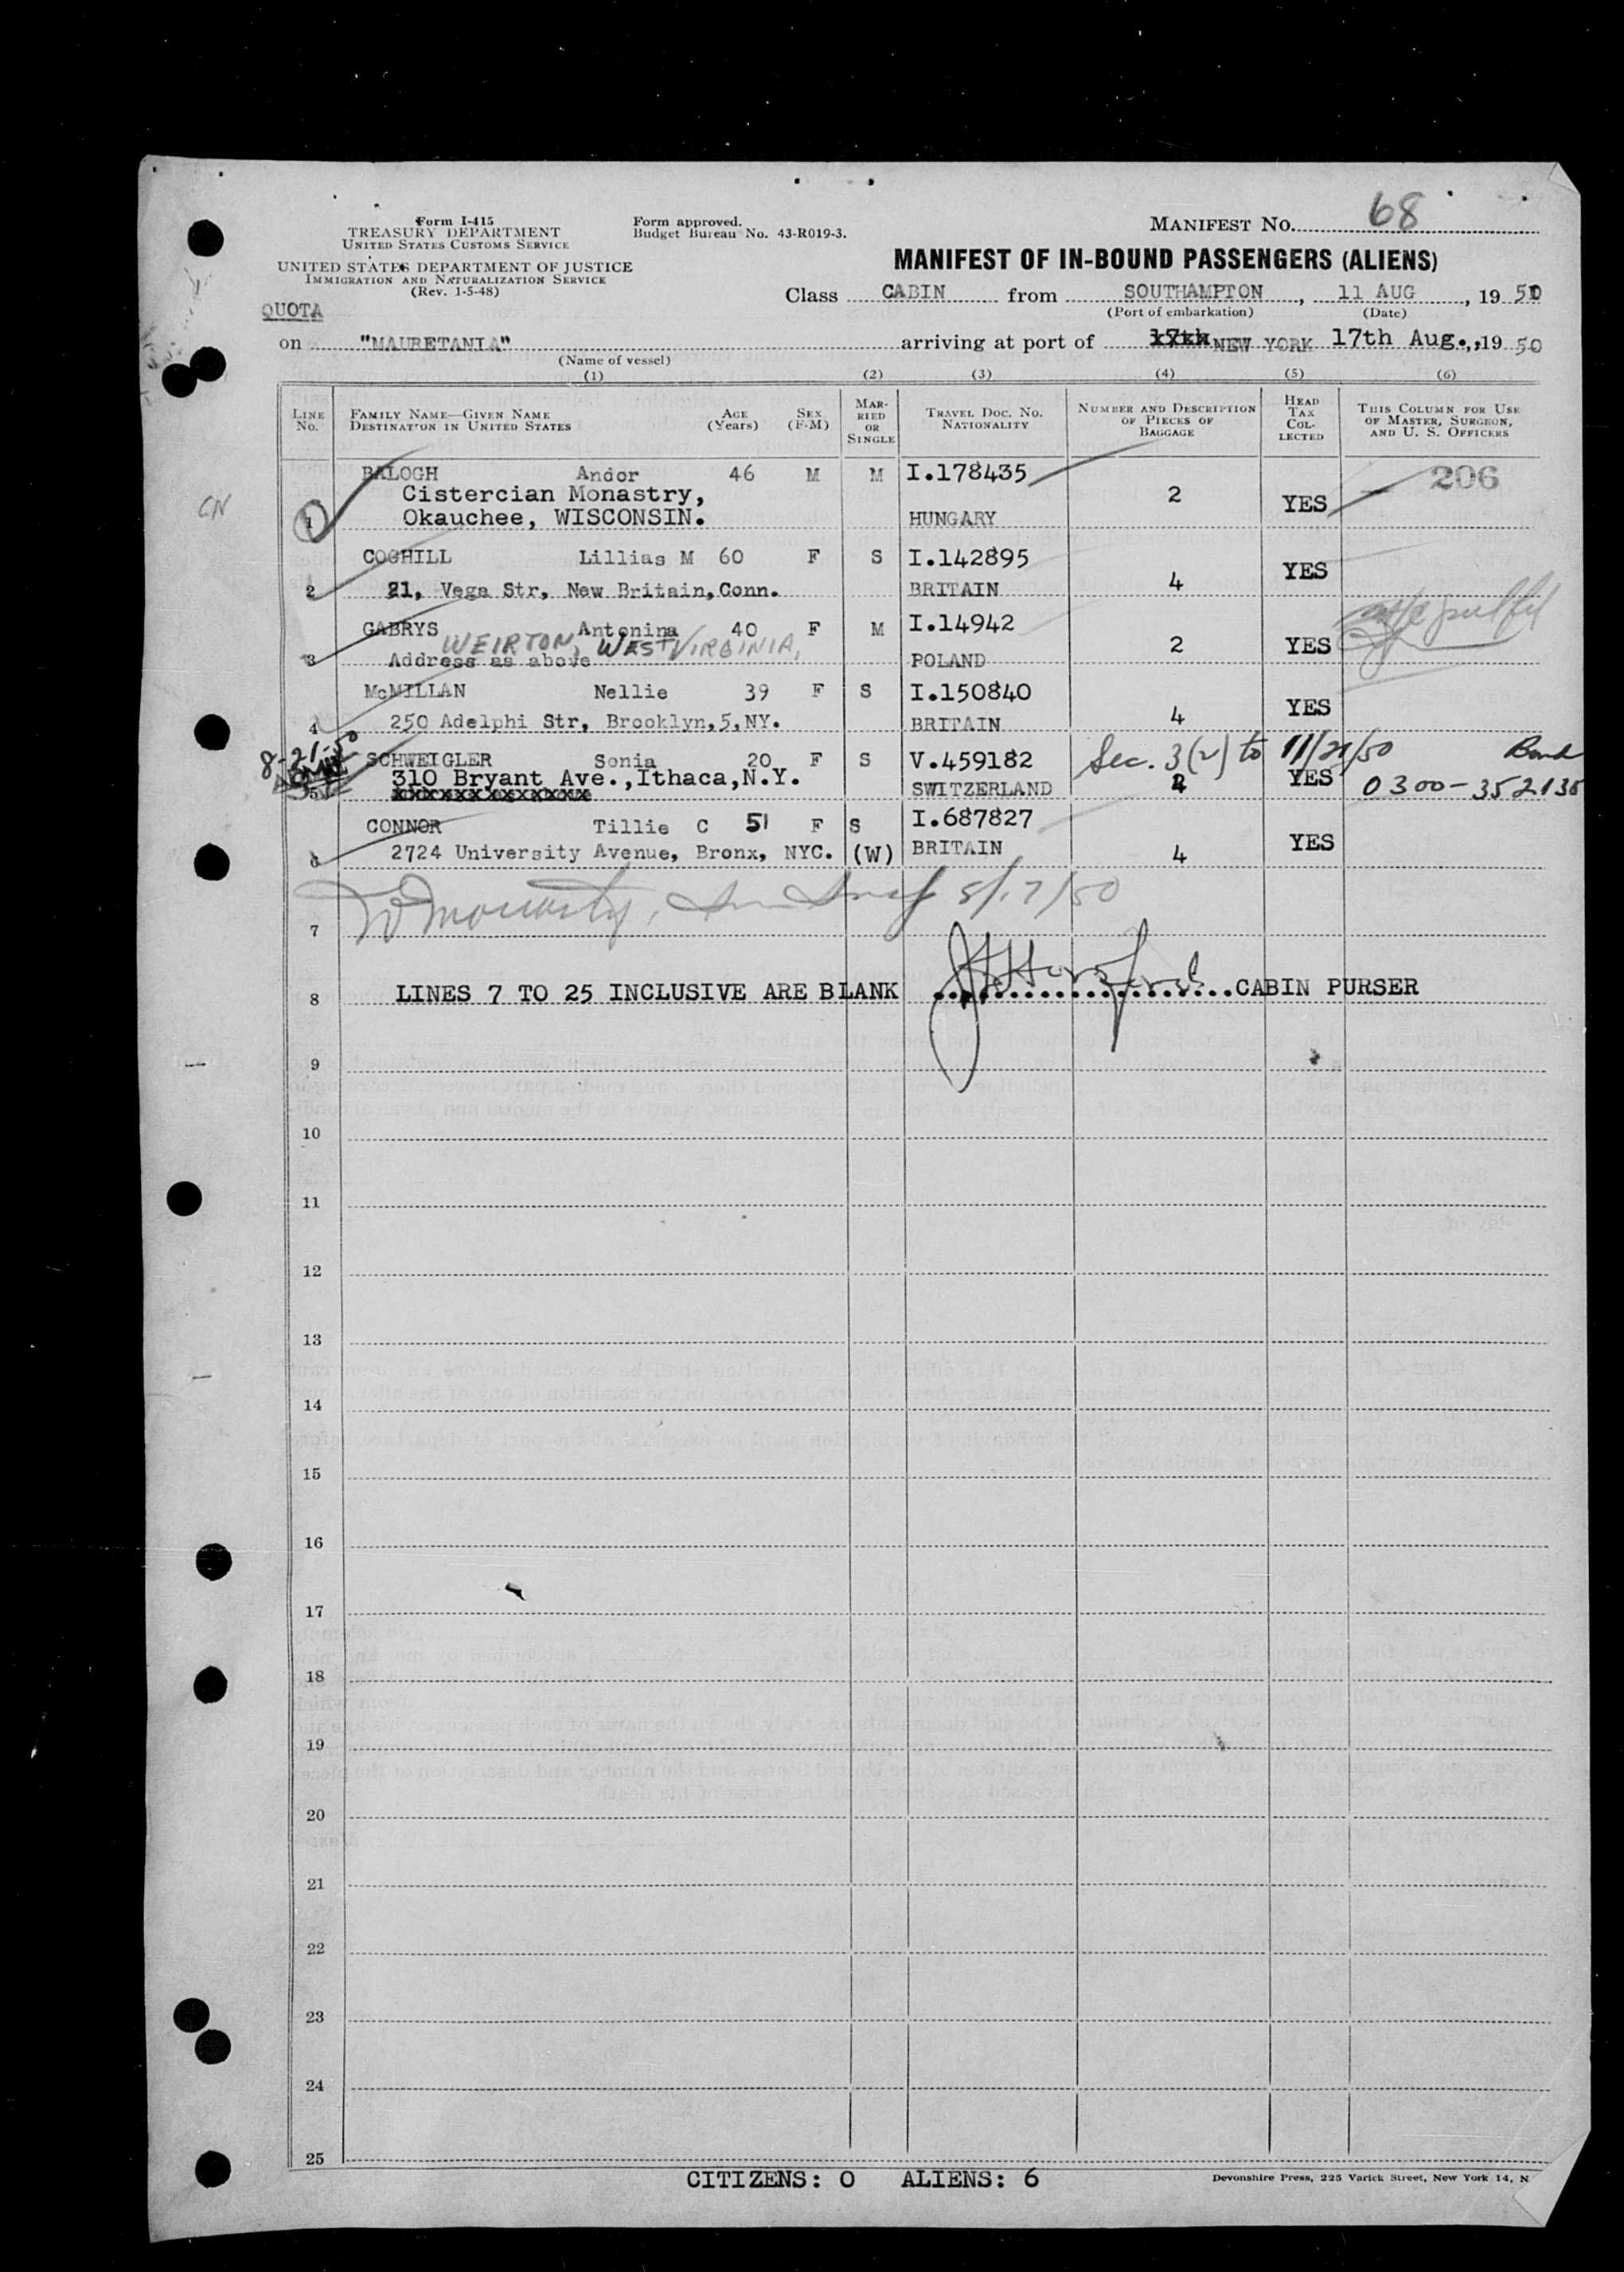 Form I-415
TREASURY DEPARTMENT
UNITED STATES CUSTOMS SERVICE
UNITED STATES DEPARTMENT OF JUSTICE
IMMIGRATION AND NATURALIZATION SERVICE
(Rev. 1-5-48)
Form approved.
Budget Bureau No. 43-R019-3.
MANIFEST No. 68
MANIFEST OF IN-BOUND PASSENGERS (ALIENS)
Class CABIN from SOUTHAMPTON, 11 AUG, 19 50
(Port of embarkation) (Date)
QUOTA
on "MAURETANIA" arriving at port of NEW YORK 17th Aug., 19 50
(Name of vessel)
(1) (2) (3) (4) (5) (6)
LINE No. FAMILY NAME—GIVEN NAME DESTINATION IN UNITED STATES AGE (Years) SEX (F-M) MARRIED OR SINGLE TRAVEL DOC. NO. NATIONALITY NUMBER AND DESCRIPTION OF PIECES OF BAGGAGE HEAD TAX COLLECTED THIS COLUMN FOR USE OF MASTER, SURGEON, AND U. S. OFFICERS
BALOGH Andor 46 M M I.178435 206
Cistercian Monastry, 2
CN 1 Okauchee, WISCONSIN. HUNGARY YES
COGHILL Lillias M 60 F S I.142895
2 21, Vega Str, New Britain, Conn. BRITAIN 4 YES
GABRYS Antonina 40 F M I.14942
WEIRTON, WEST VIRGINIA, 2 YES
3 Address as above POLAND
McMILLAN Nellie 39 F S I.150840
4 250 Adelphi Str, Brooklyn,5,NY. BRITAIN 4 YES
8-21-50 SCHWEIGLER Sonia 20 F S V.459182 Sec. 3(2) to 11/21/50 Bond
5 310 Bryant Ave.,Ithaca,N.Y. SWITZERLAND YES 0300-352135
xxxxxxxxxxxxxx
CONNOR Tillie C 51 F S I.687827
6 2724 University Avenue, Bronx, NYC. (W) BRITAIN 4 YES
8/17/50
7
8 LINES 7 TO 25 INCLUSIVE ARE BLANK ....................CABIN PURSER
9
10
11
12
13
14
15
16
17
18
19
20
21
22
23
24
25
CITIZENS: 0 ALIENS: 6
Devonshire Press, 225 Varick Street, New York 14, N